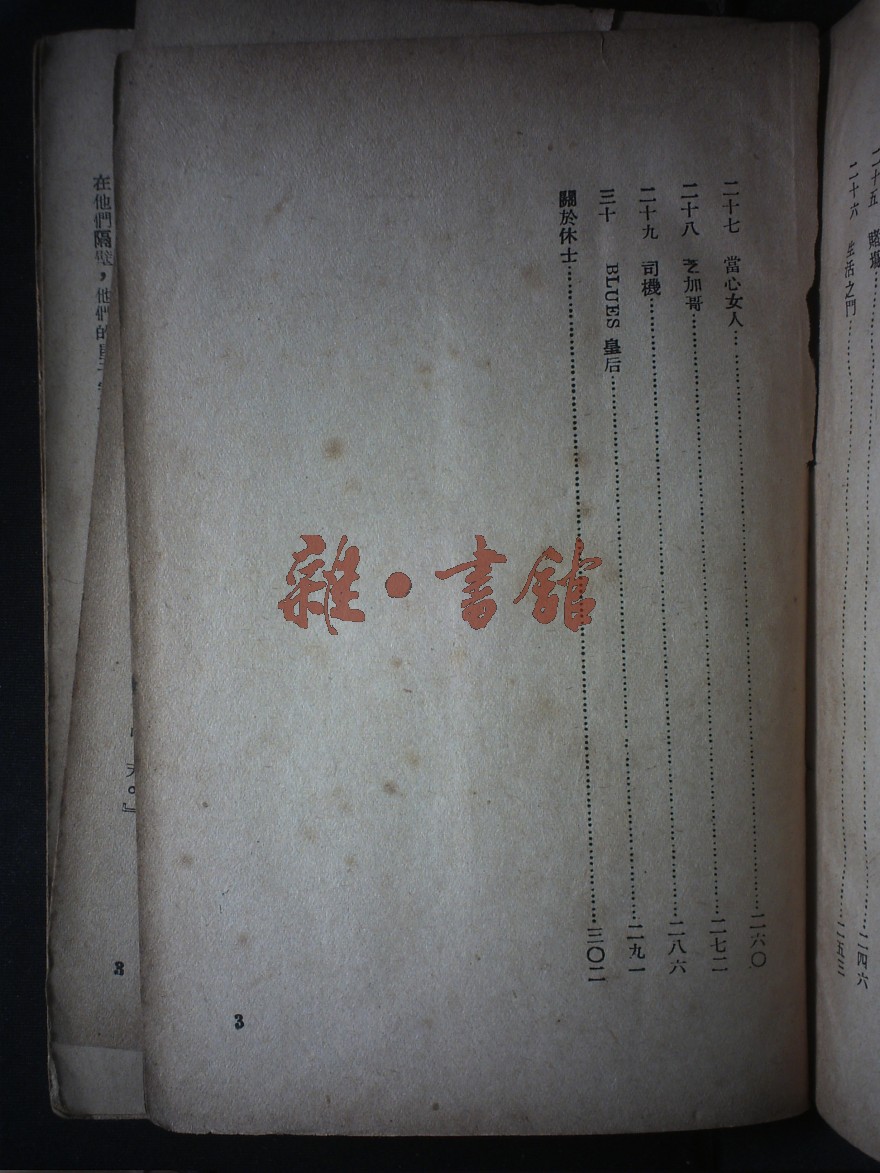 二十五
二四六
二十六 生活之門……二五三
二十七 當心女人……二六〇
二十八 芝加哥……二七二
二十九 司機……二八六
三十 BLUES 皇后……二九一
關於休士……三〇二
3
雜·書館
在他們隔壁,他們的
天。』
3